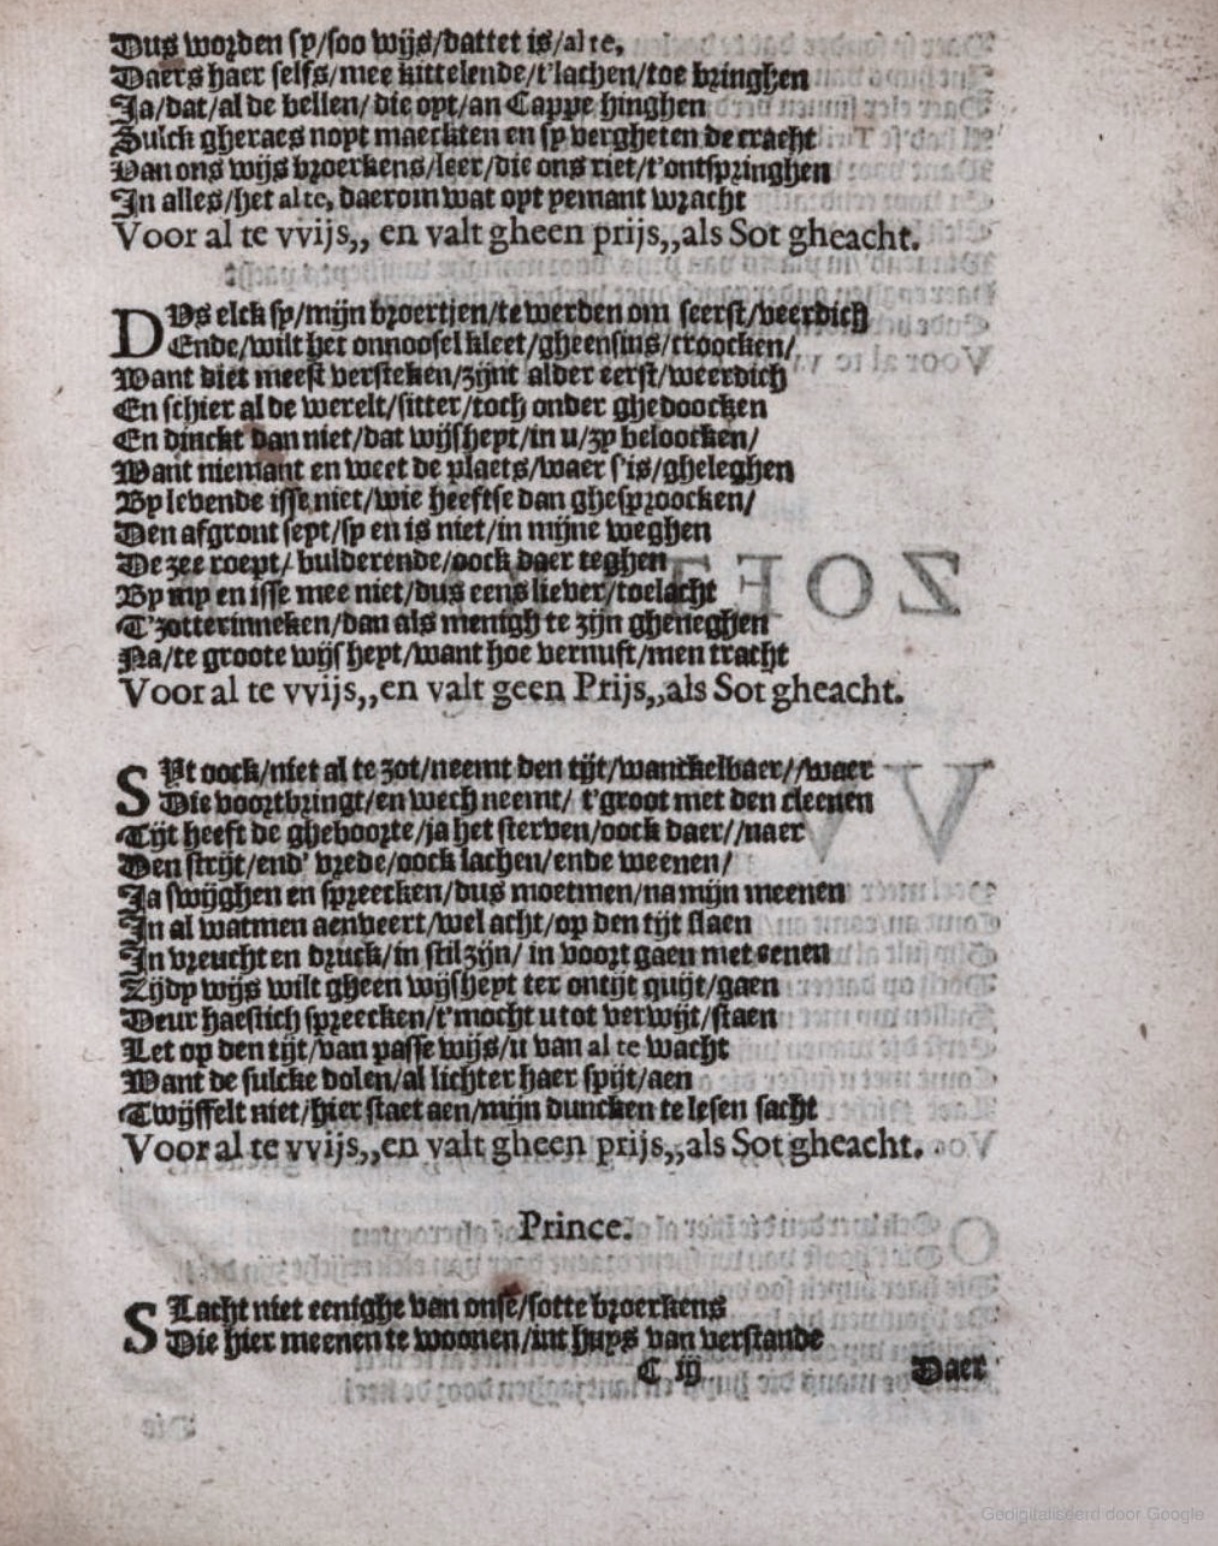 Dus worden sy/soo wijs/dattet is/al te,
Daers haer selfs/mee kittelende/t'lachen/toe bringhen
Ja/dat/al de bellen/die opt/an Cappe hinghen
Sulck gheraes noyt maeckten en sy vergheten de cracht
Van ons wijs broerkens/leer/die ons riet/t'ontspringhen
In alles/het al te, daerom wat oyt yemant wracht
Voor al te vvijs,, en valt gheen prijs,,als Sot gheacht.
DVs elck sy/mijn broertjen/te werden om seerst/veerdich
Ende/wilt het onnoosel kleet/gheensins/croocken/
Want diet meest versteken/zijnt alder eerst/weerdich
En schier al de werelt/sitter/toch onder ghedoocken
En dinckt dan niet/dat wijsheyt/in u/zy beloocken/
Want niemant en weet de plaets/waer s'is/gheleghen
By levende isse niet/wie heeftse dan ghesproocken/
Den afgront seyt/sy en is niet/in mijne weghen
De zee roept/bulderende/oock daer teghen
By my en isse mee niet/dus eens liever/toelacht
T'zotterinneken/dan als menigh te zijn gheneghen
Na/te groote wijsheyt/want hoe vernuft/men tracht
Voor al te vvijs,,en valt geen Prijs,,als Sot gheacht.
SYt oock/niet al te zot/neemt den tijt/wanckelbaer//waer
Die voortbringt/en wech neemt/ t'groot met den cleenen
Tijt heeft de gheboorte/ja het sterven/oock daer//naer
Den strijt/end' vrede/oock lachen/ende weenen/
Ja swijghen en spreecken/dus moetmen/na mijn meenen
In al watmen aenveert/wel acht/op den tijt slaen
In vreucht en druck/in stil zijn/ in voort gaen met eenen
Zijdy wijs wilt gheen wijsheyt ter ontijt quijt/gaen
Deur haestich spreecken/t'mocht u tot verwijt/staen
Let op den tijt/van passe wijs/u van al te wacht
Want de sulcke dolen/al lichter haer spijt/aen
Twijffelt niet/hier staet aen/mijn duncken te lesen sacht
Voor al te vvijs,,en valt gheen prijs,,als Sot gheacht.
Prince.
SLacht niet eenighe van onse/sotte broerkens
Die hier meenen te woonen/int huys van verstande
C iij Daer
Gedigitaliseerd door Google